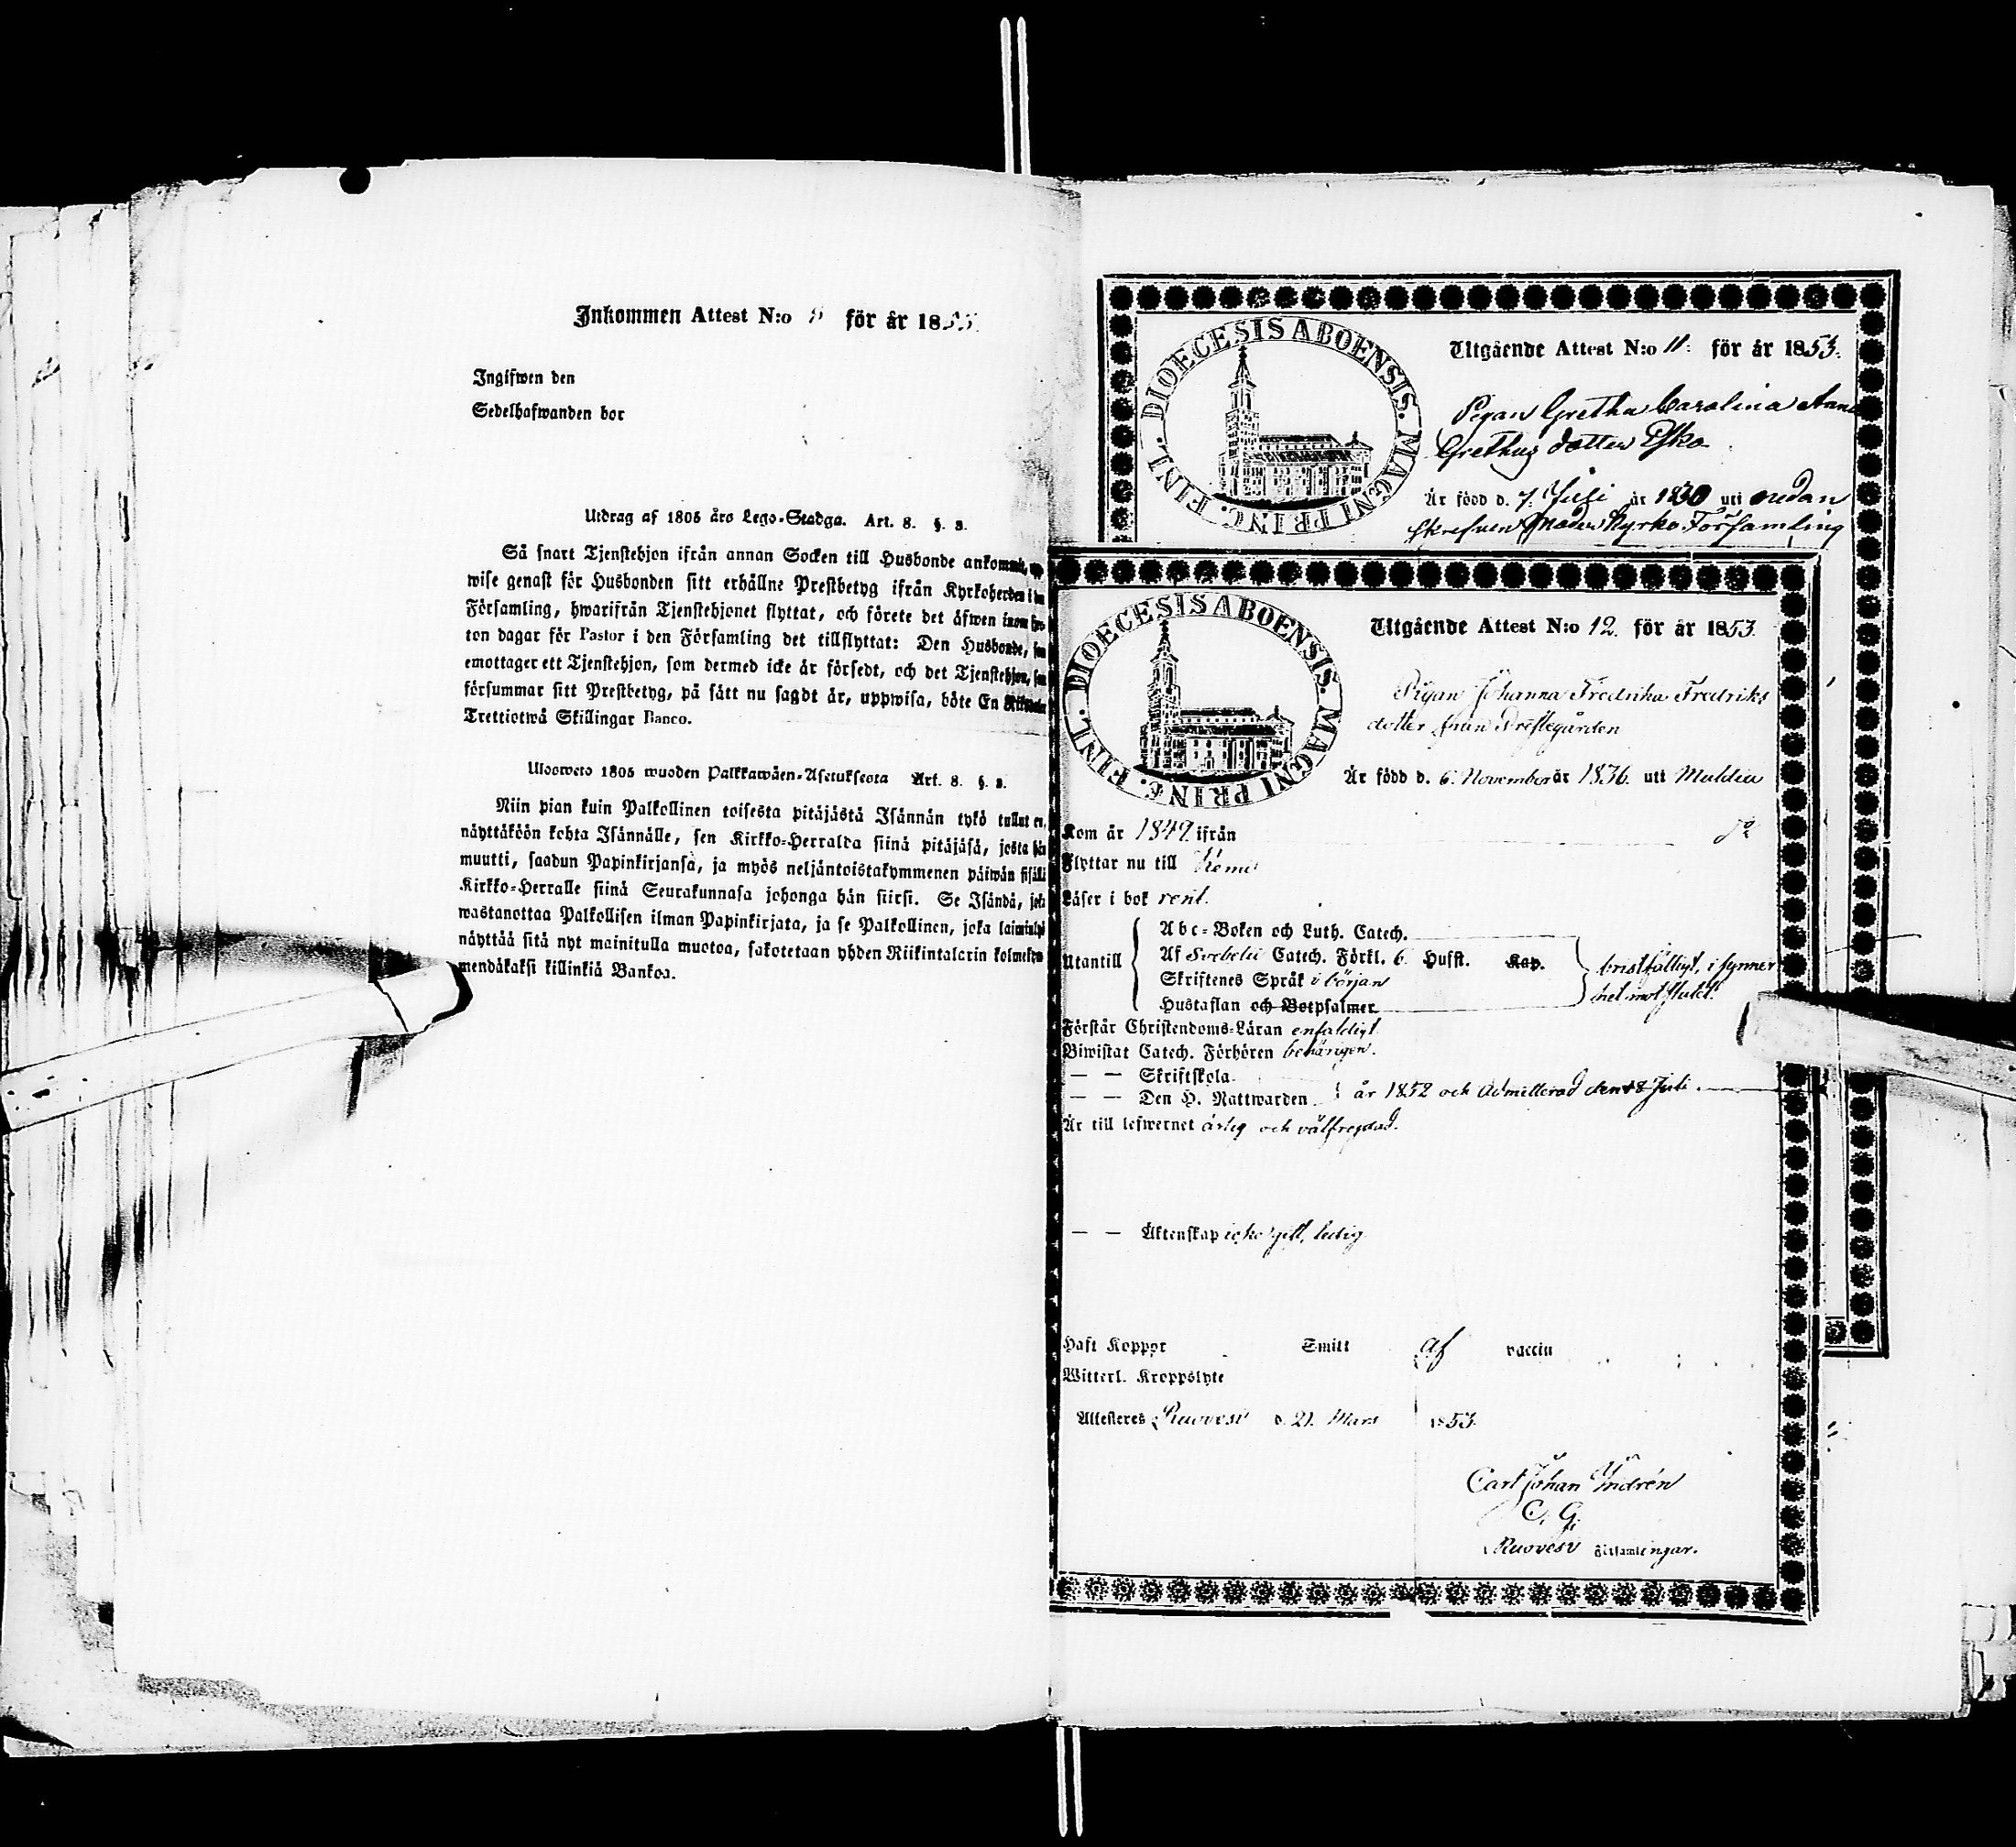 Inkommen Attest N:o 8 för år 1853.
Ingifwen den
Sedelhafwanden bor
Utdrag af 1805 års Lego-Stadga. Art. 8. §. 2.
Så snart Tjenstehjon ifrån annan Socken till Husbonde ankommit,
wise genast för Husbonden sitt erhållne Prestbetyg ifrån Kyrkoherden i
Församling, hwarifrån Tjenstehjonet flyttat, och förete det äfwen inom
ton dagar för Pastor i den Församling det tillflyttat: Den Husbonde,
emottager ett Tjenstehjon, som dermed icke är försedt, och det Tjenstehjon,
försummar sitt Prestbetyg, på sätt nu sagdt är, uppwisa, böte En
Trettiotwå Skillingar Banco.
Ulosweto 1805 wuoden Palkkawäen-Asetuksesta Art. 8. §. 2.
Niin pian kuin Palkollinen toisesta pitäjästä Isännän tykö tullut on,
näyttäköön kohta Isännälle, sen Kirkko-Herralda siinä pitäjäsä, josta hän
muutti, saadun Papinkirjansa, ja myös neljäntoistakymmenen päiwän sisälli
Kirkko-Herralle siinä Seurakunnasa johonga hän siirsi. Se Isändä, joka
wastanottaa Palkollisen ilman Papinkirjata, ja se Palkollinen, joka laiminlyö
näyttää sitä nyt mainitulla muotoa, sakotetaan yhden Riikintalarin kolmekym
mendäkaksi killinkiä Bankoa.
DIOECESIS ABOENSIS. MAGNI PRINC. FINL.
Utgående Attest N:o 11. för år 1853.
Pigan Gretha Carolina Anna
Grethas dotter Esko
Är född d. 7. Juli år 1830 uti nedan
skrefven Moder Kyrko Församling
DIOECESIS ABOENSIS. MAGNI PRINC. FINL.
Utgående Attest N:o 12. för år 1853.
Pigan Johanna Fredrika Fredriks
dotter från Prestegården
Är född d. 6. November år 1836. uti Muldia
Kom år 1849 ifrån do
Flyttar nu till Kemi
Läser i bok rent.
Abc-Boken och Luth. Catech.
Utantill Af Svebelii Catech. Förkl. 6 Hufst. Kap. bristfälligt, i synner
Skriftenes Språk i början het mot slutet.
Hustaflan och Botpsalmer
Förstår Christendoms-Läran enfaldigt.
Biwistat Catech. Förhören behörigen.
— — Skriftskola
— — Den H. Nattwarden år 1852 och Admitterad den 18 Juli
Är till lefwernet ärlig och välfrejdad.
— — Äktenskap icke gift, ledig
Haft Koppor Smitt af vaccin
Witterl. Kroppslyte
Attesteres Ruovesi d. 21. Mars 1853.
Carl Johan Indrén
C. G.
i Ruovesi Församlingar.